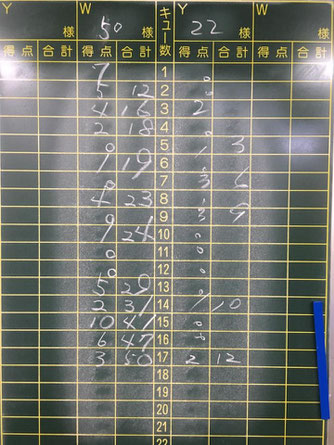 Y W キュー数 Y W
様 50 様 22 様 様
得点 合計 得点 合計 得点 合計 得点 合計
7 1 0
5 12 2 0
4 16 3 2
2 18 4 0
0 5 1 3
1 19 6
0 7 3 6
4 23 8
9 3 9
24 10 0
0 11 0
0 12 0
5 29 13 0
2 31 14 1 10
10 41 15 0
6 47 16 0
3 50 17 2 12
18
19
20
21
22